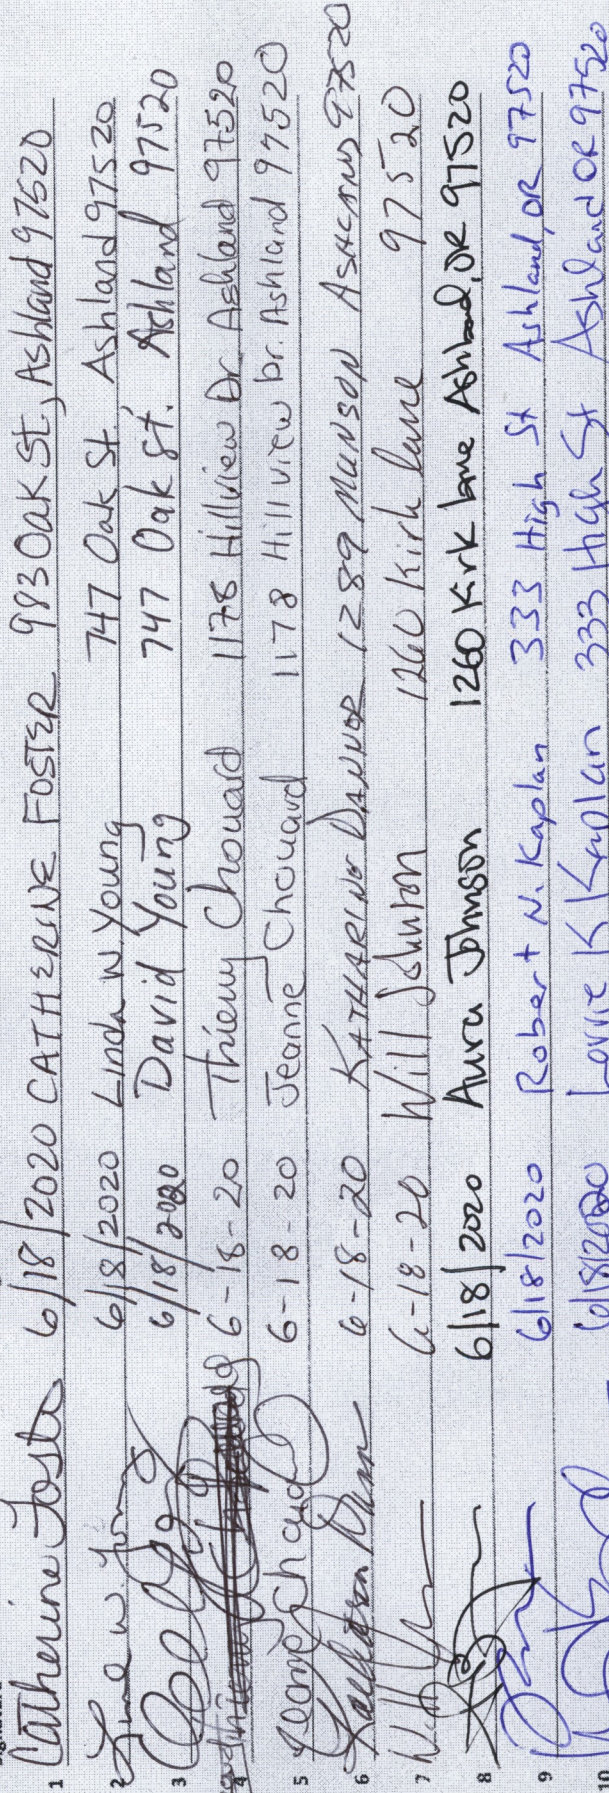 1 Catherine Foster 6/18/2020 CATHERINE FOSTER 983 Oak St, Ashland 97520
2 Linda W. Young 6/18/2020 Linda W. Young 747 Oak St. Ashland 97520
3 6/18/2020 David Young 747 Oak St. Ashland 97520
4 6-18-20 Thierry Chouard 1178 Hillview Dr. Ashland 97520
5 Jeanne Chouard 6-18-20 Jeanne Chouard 1178 Hillview Dr. Ashland 97520
6 6-18-20 KATHARINE DANNER 1289 MUNSON ASHLAND 97520
7 6-18-20 Will Johnson 1260 Kirk Lane 97520
8 6/18/2020 Aura Johnson 1260 Kirk Lane Ashland, OR 97520
9 6/18/2020 Robert N. Kaplan 333 High St Ashland, OR 97520
10 6/18/2020 Lorrie K Kaplan 333 High St Ashland OR 97520